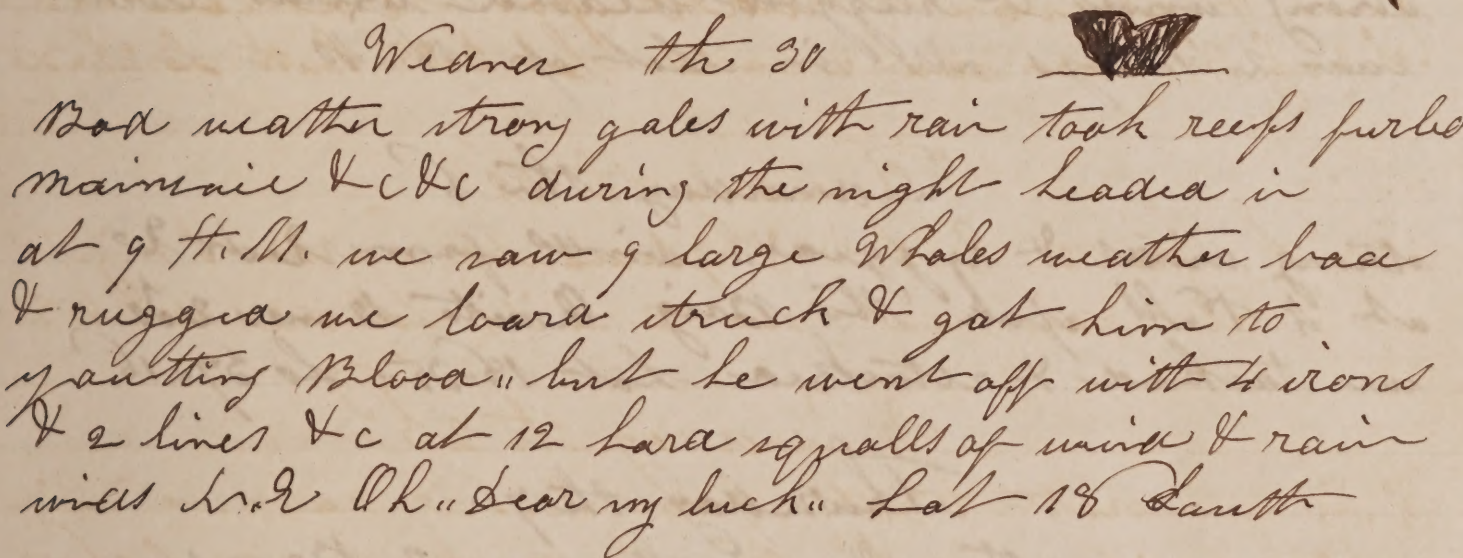 Wednes th 30
Bad weather strong gales with rain took reefs furled
mainsail &c &c during the night headed in
at 9 A.M. we saw 9 large Whales weather bad
& rugged we loard struck & got him to
spoutting Blood " but he went off with 4 irons
& 2 lines &c at 12 hard squalls of wind & rain
winds N.E Oh " Dear my luck " Lat 18 South